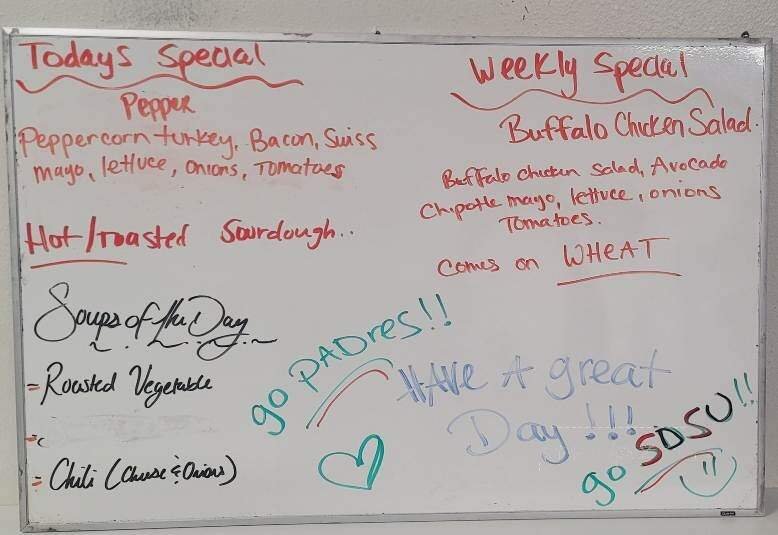 Todays Special
Pepper
Peppercorn turkey, Bacon, Suiss
mayo, lettuce, onions, Tomatoes
Hot/roasted Sourdough..
Weekly Special
Buffalo Chicken Salad.
Buffalo chicken salad, Avocado
Chipotle mayo, lettuce, onions
Tomatoes.
Comes on WHEAT
Soups of the Day
- Roasted Vegetable
- Chili (Cheese & Onions)
go PADres!!
HAVE A great
Day!!!
go SDSU!!